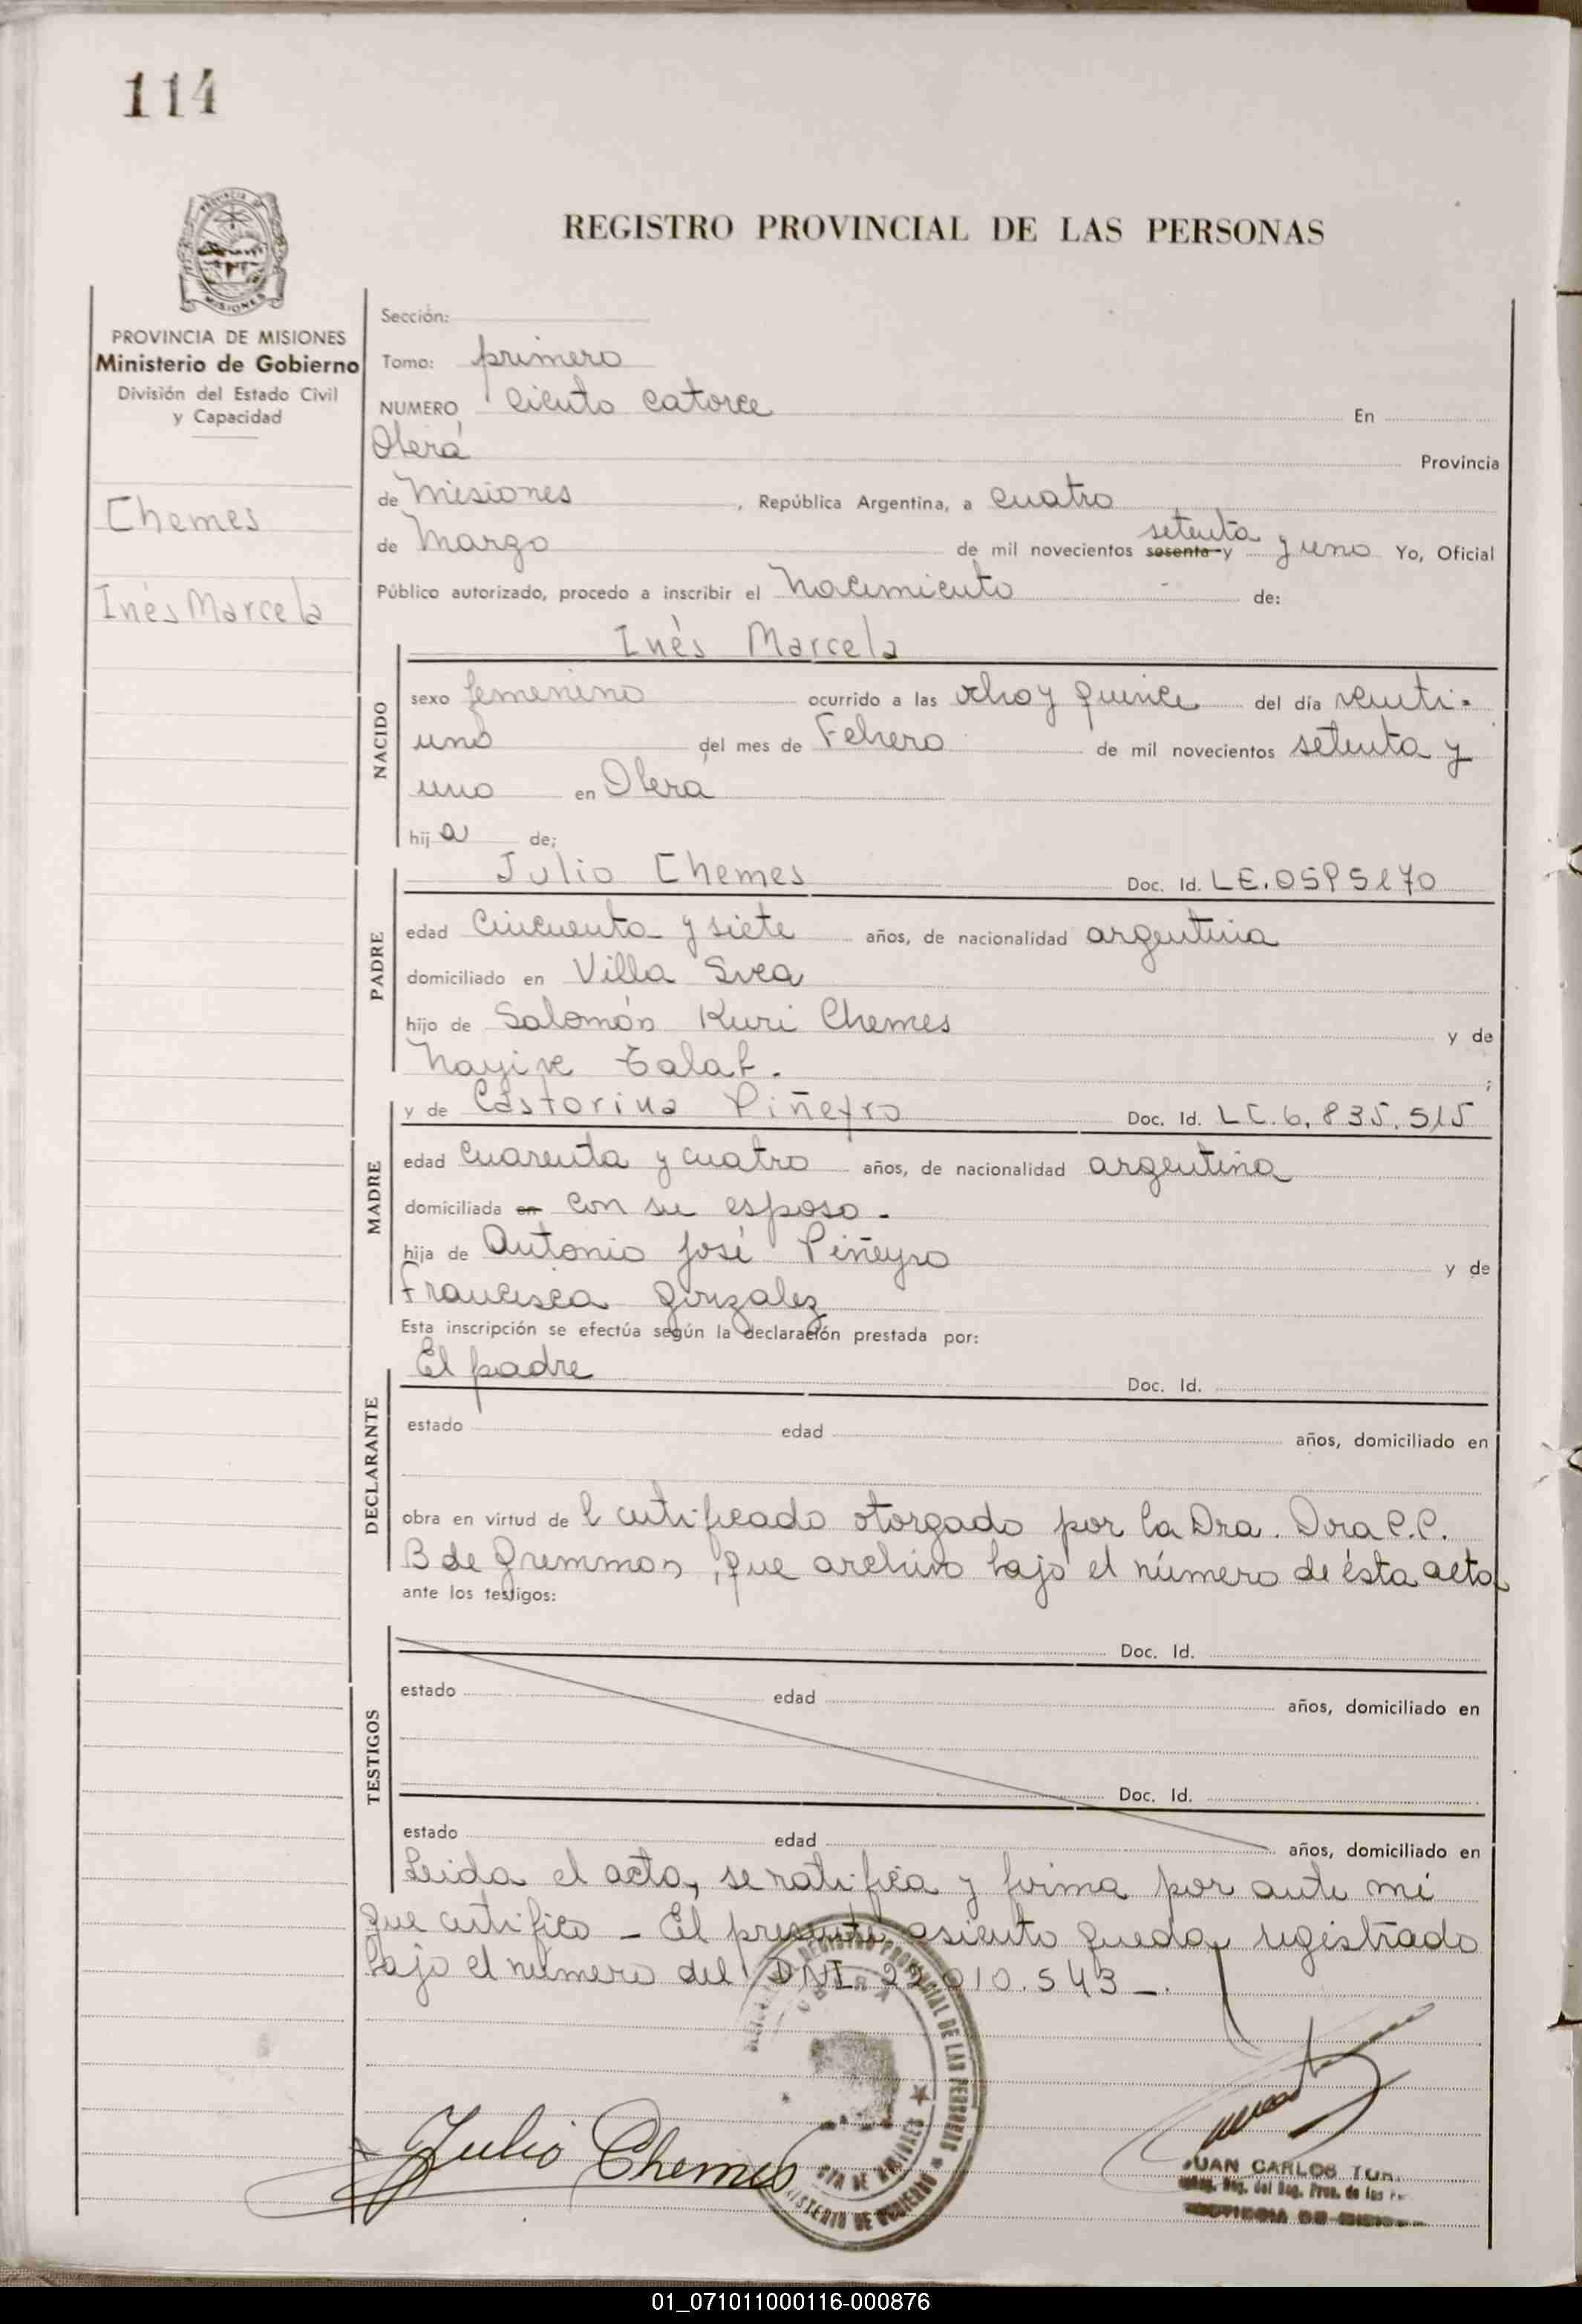 114
REGISTRO PROVINCIAL DE LAS PERSONAS
MISIONES
PROVINCIA DE MISIONES
Ministerio de Gobierno
División del Estado Civil
y Capacidad
Chemes
Inés Marcela
Sección:
Tomo: primero
NUMERO ciento catorce En
Oberá Provincia
de Misiones, República Argentina, a cuatro
de Marzo de mil novecientos sesenta y setenta y uno Yo, Oficial
Público autorizado, procedo a inscribir el Nacimiento de:
NACIDO
Inés Marcela
sexo femenino ocurrido a las ocho y quince del día veinti-
uno del mes de Febrero de mil novecientos setenta y
uno en Oberá
hija de:
PADRE
Julio Chemes Doc. Id. L.E.
edad cincuenta y siete años, de nacionalidad argentina
domiciliado en Villa Svea
hijo de Salomón Kuri Chemes y de
Nayive
MADRE
y de Castorina Piñeyro Doc. Id. LC. 6.835.515
edad cuarenta y cuatro años, de nacionalidad argentina
domiciliada en con su esposo.-
hija de Antonio José Piñeyro y de
Francisca Gonzalez
Esta inscripción se efectúa según la declaración prestada por:
DECLARANTE
El padre Doc. Id.
estado edad años, domiciliado en
obra en virtud de l certificado otorgado por la Dra. Dora C.C.
B de, que archivo bajo el número de ésta acta
ante los testigos:
TESTIGOS
Doc. Id.
estado edad años, domiciliado en
Doc. Id.
estado edad años, domiciliado en
Leida el acta, se ratifica y firma por ante mi
que certifico - El presente asiento queda registrado
bajo el número del DNI 22.010.543 -.
REGISTRO PROVINCIAL DE LAS PERSONAS
OBERA
MINISTERIO DE GOBIERNO
Julio Chemes
JUAN CARLOS
01_071011000116-000876